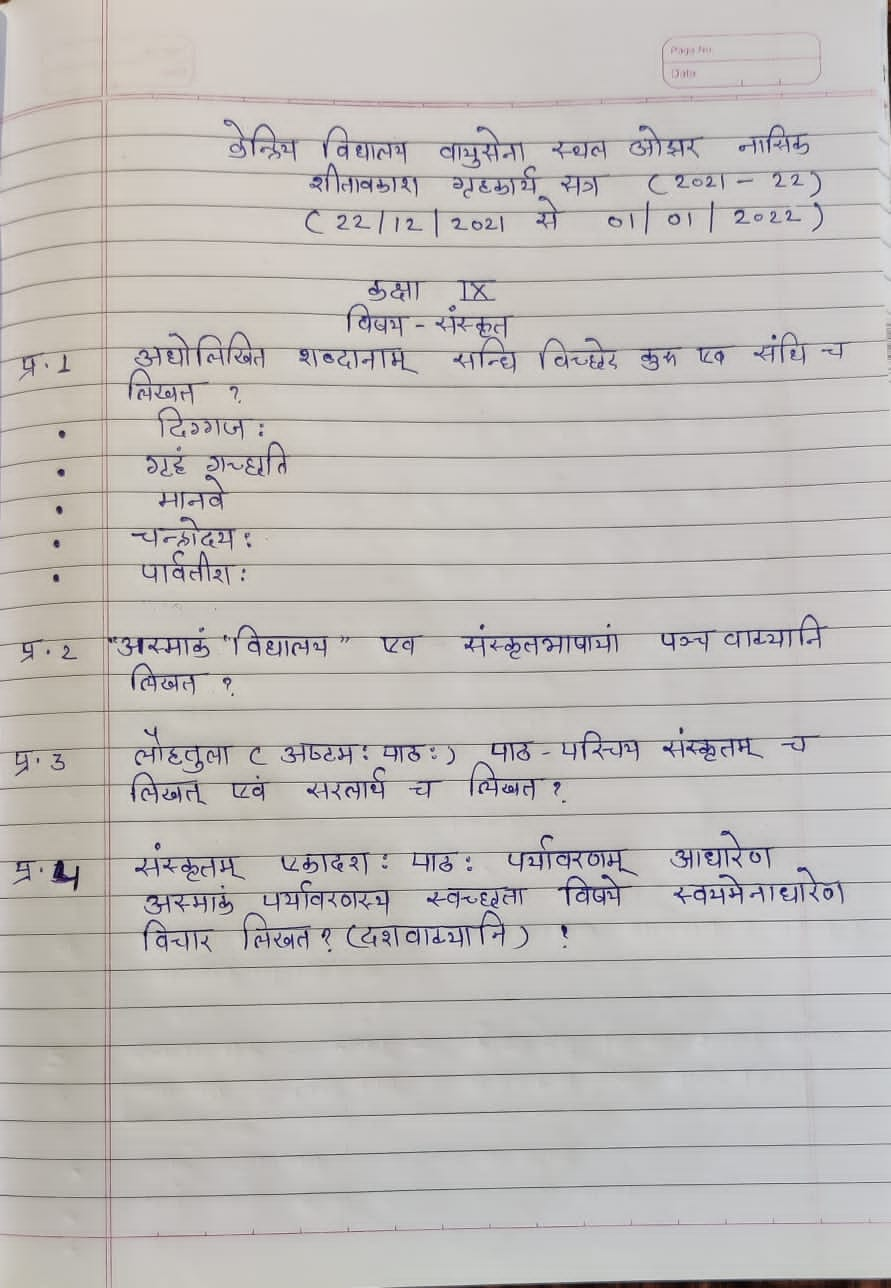 Page No.
Date
केन्द्रिय विद्यालय वायुसेना स्थल ओझर नासिक
शीतावकाश गृहकार्य सत्र (2021 - 22)
(22/12/2021 से 01/01/2022)
कक्षा IX
विषय - संस्कृत
प्र.1 अधोलिखित शब्दानाम् सन्धि विच्छेद कुरु एव संधि च
लिखत ?
• दिग्गज:
• गृहं गच्छति
• मानवे
• चन्द्रोदय:
• पार्वतीश:
प्र.2 "अस्माकं "विद्यालय" एव संस्कृतभाषायां पञ्च वाक्यानि
लिखत ?
प्र.3 लौहतुला (अष्टम: पाठ:) पाठ - परिचय संस्कृतम् च
लिखत् एवं सरलार्थ च लिखत ?
प्र.4 संस्कृतम् एकादश: पाठ: पर्यावरणम् आधारेण
अस्माकं पर्यावरणस्य स्वच्छता विषये स्वयमेनाधारेण
विचार लिखत ? (दशवाक्यानि) ?